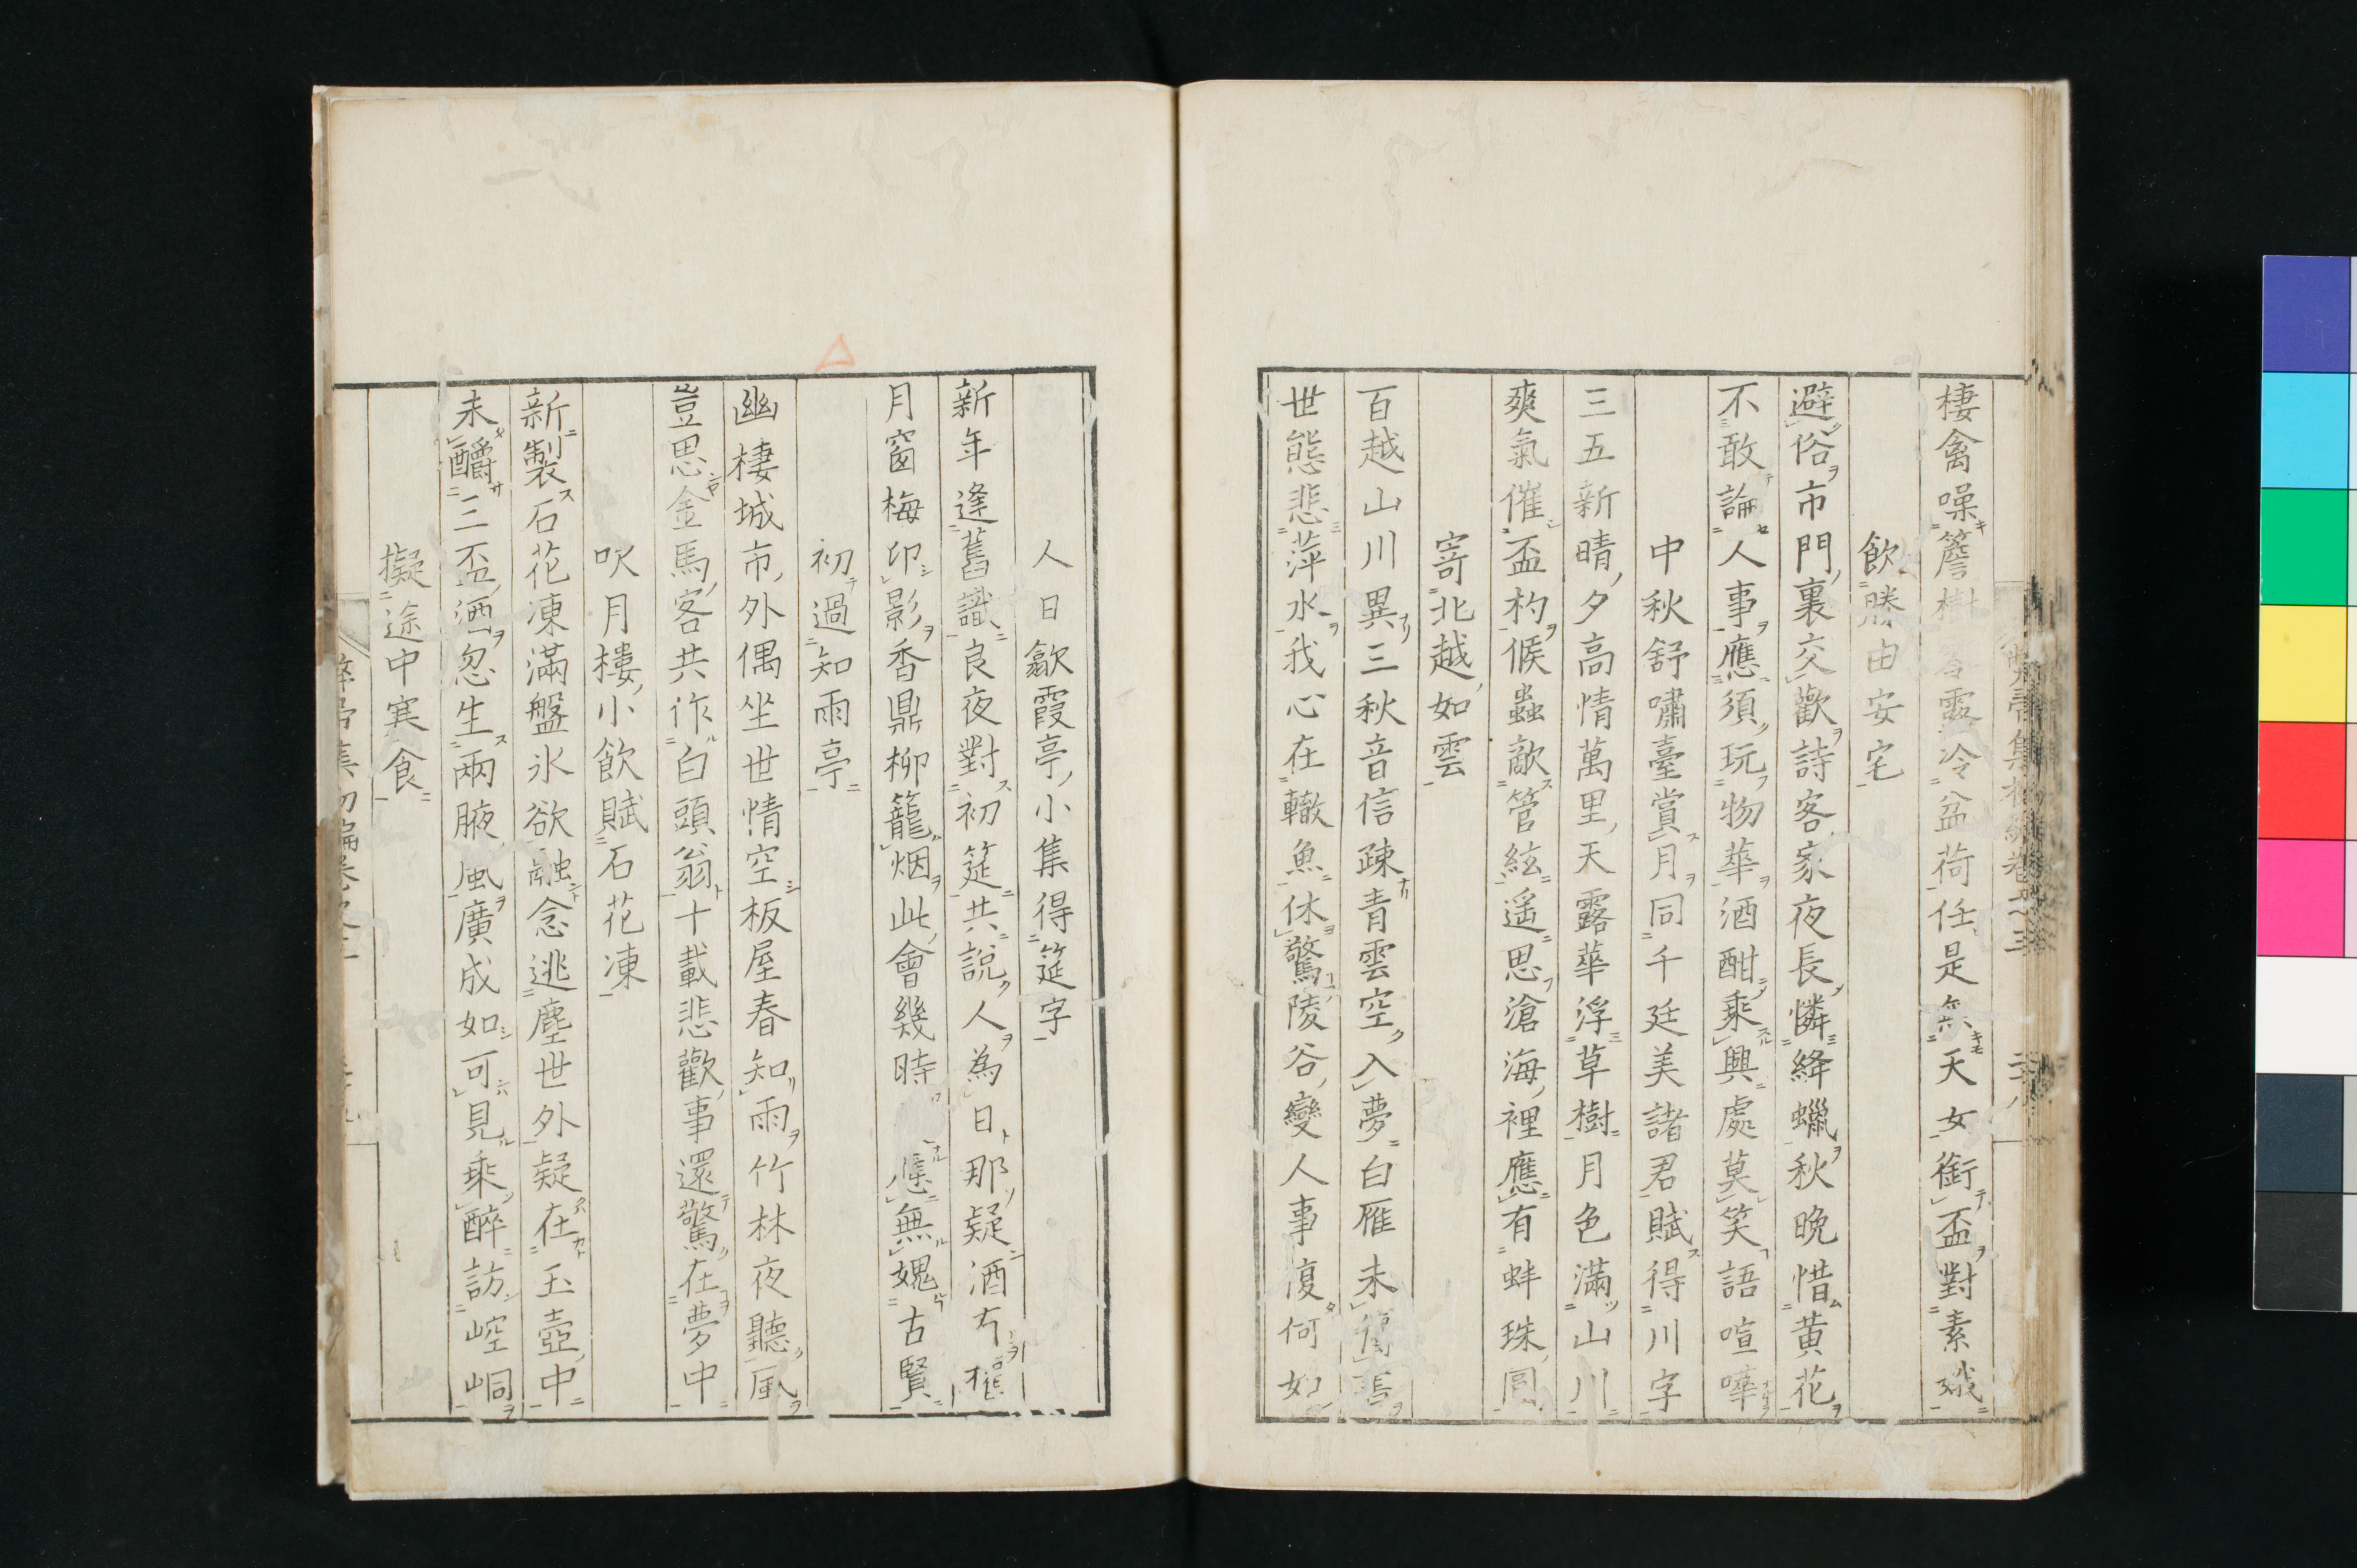 棲禽噪簷樹露冷盆荷任是無天女銜盃對素娥
飲勝由安宅
避俗市門裏交歡詩客家夜長憐絳蠟秋晚惜黃花
不敢論人事應須玩物華酒酣乘興處莫笑語喧嘩
中秋舒嘯臺賞月同千廷美諸君賦得川字
三五新晴夕高情萬里天露華浮草樹月色滿山川
爽氣催盃杓候蟲敵管絃遥思滄海裡應有蚌珠圓
寄北越如雲
百越山川異三秋音信疎青雲空入夢白雁未傳書
世態悲萍水我心在轍魚休驚陵谷變人事復何如
人日歙霞亭小集得筵字
新年逢舊識良夜對初筵共說人為日那疑酒有權
月窗梅印影香鼎柳籠烟此會幾時應無媿古賢
初過知雨亭
幽棲城市外偶坐世情空板屋春知雨竹林夜聽風
豈思金馬客共作白頭翁十載悲歡事還驚在夢中
吹月樓小飲賦石花凍
新製石花凍滿盤氷欲融念逃塵世外疑在玉壺中
未釂三盃酒忽生兩腋風廣成如可見乘醉訪崆峒
擬途中寒食